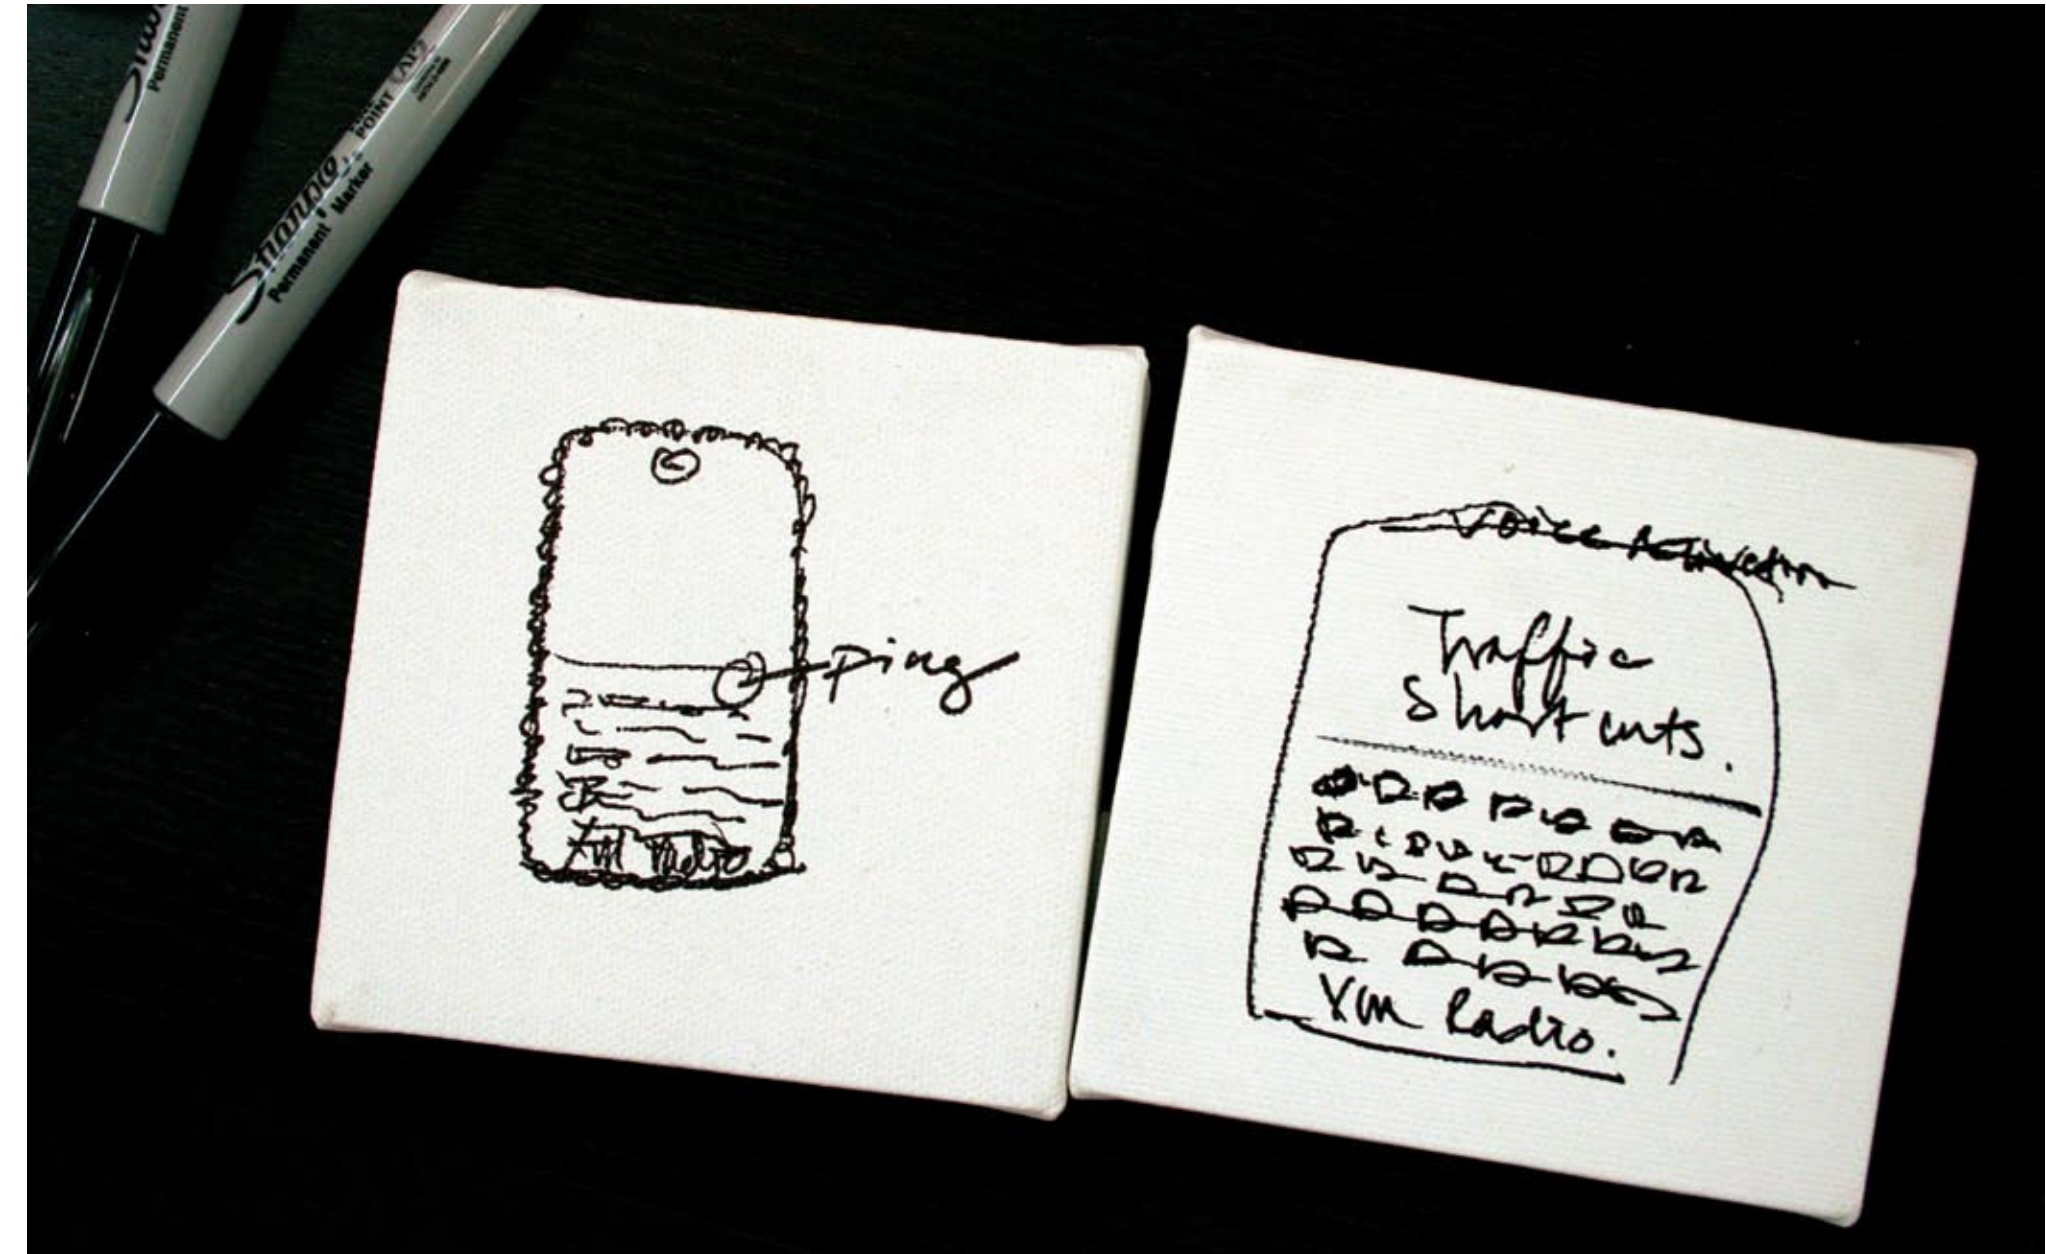 Permanent
Sharpie
Permanent Marker
POINT
ping
Xm radio
Voice Activation
Traffic
Short cuts.
Xm Radio.